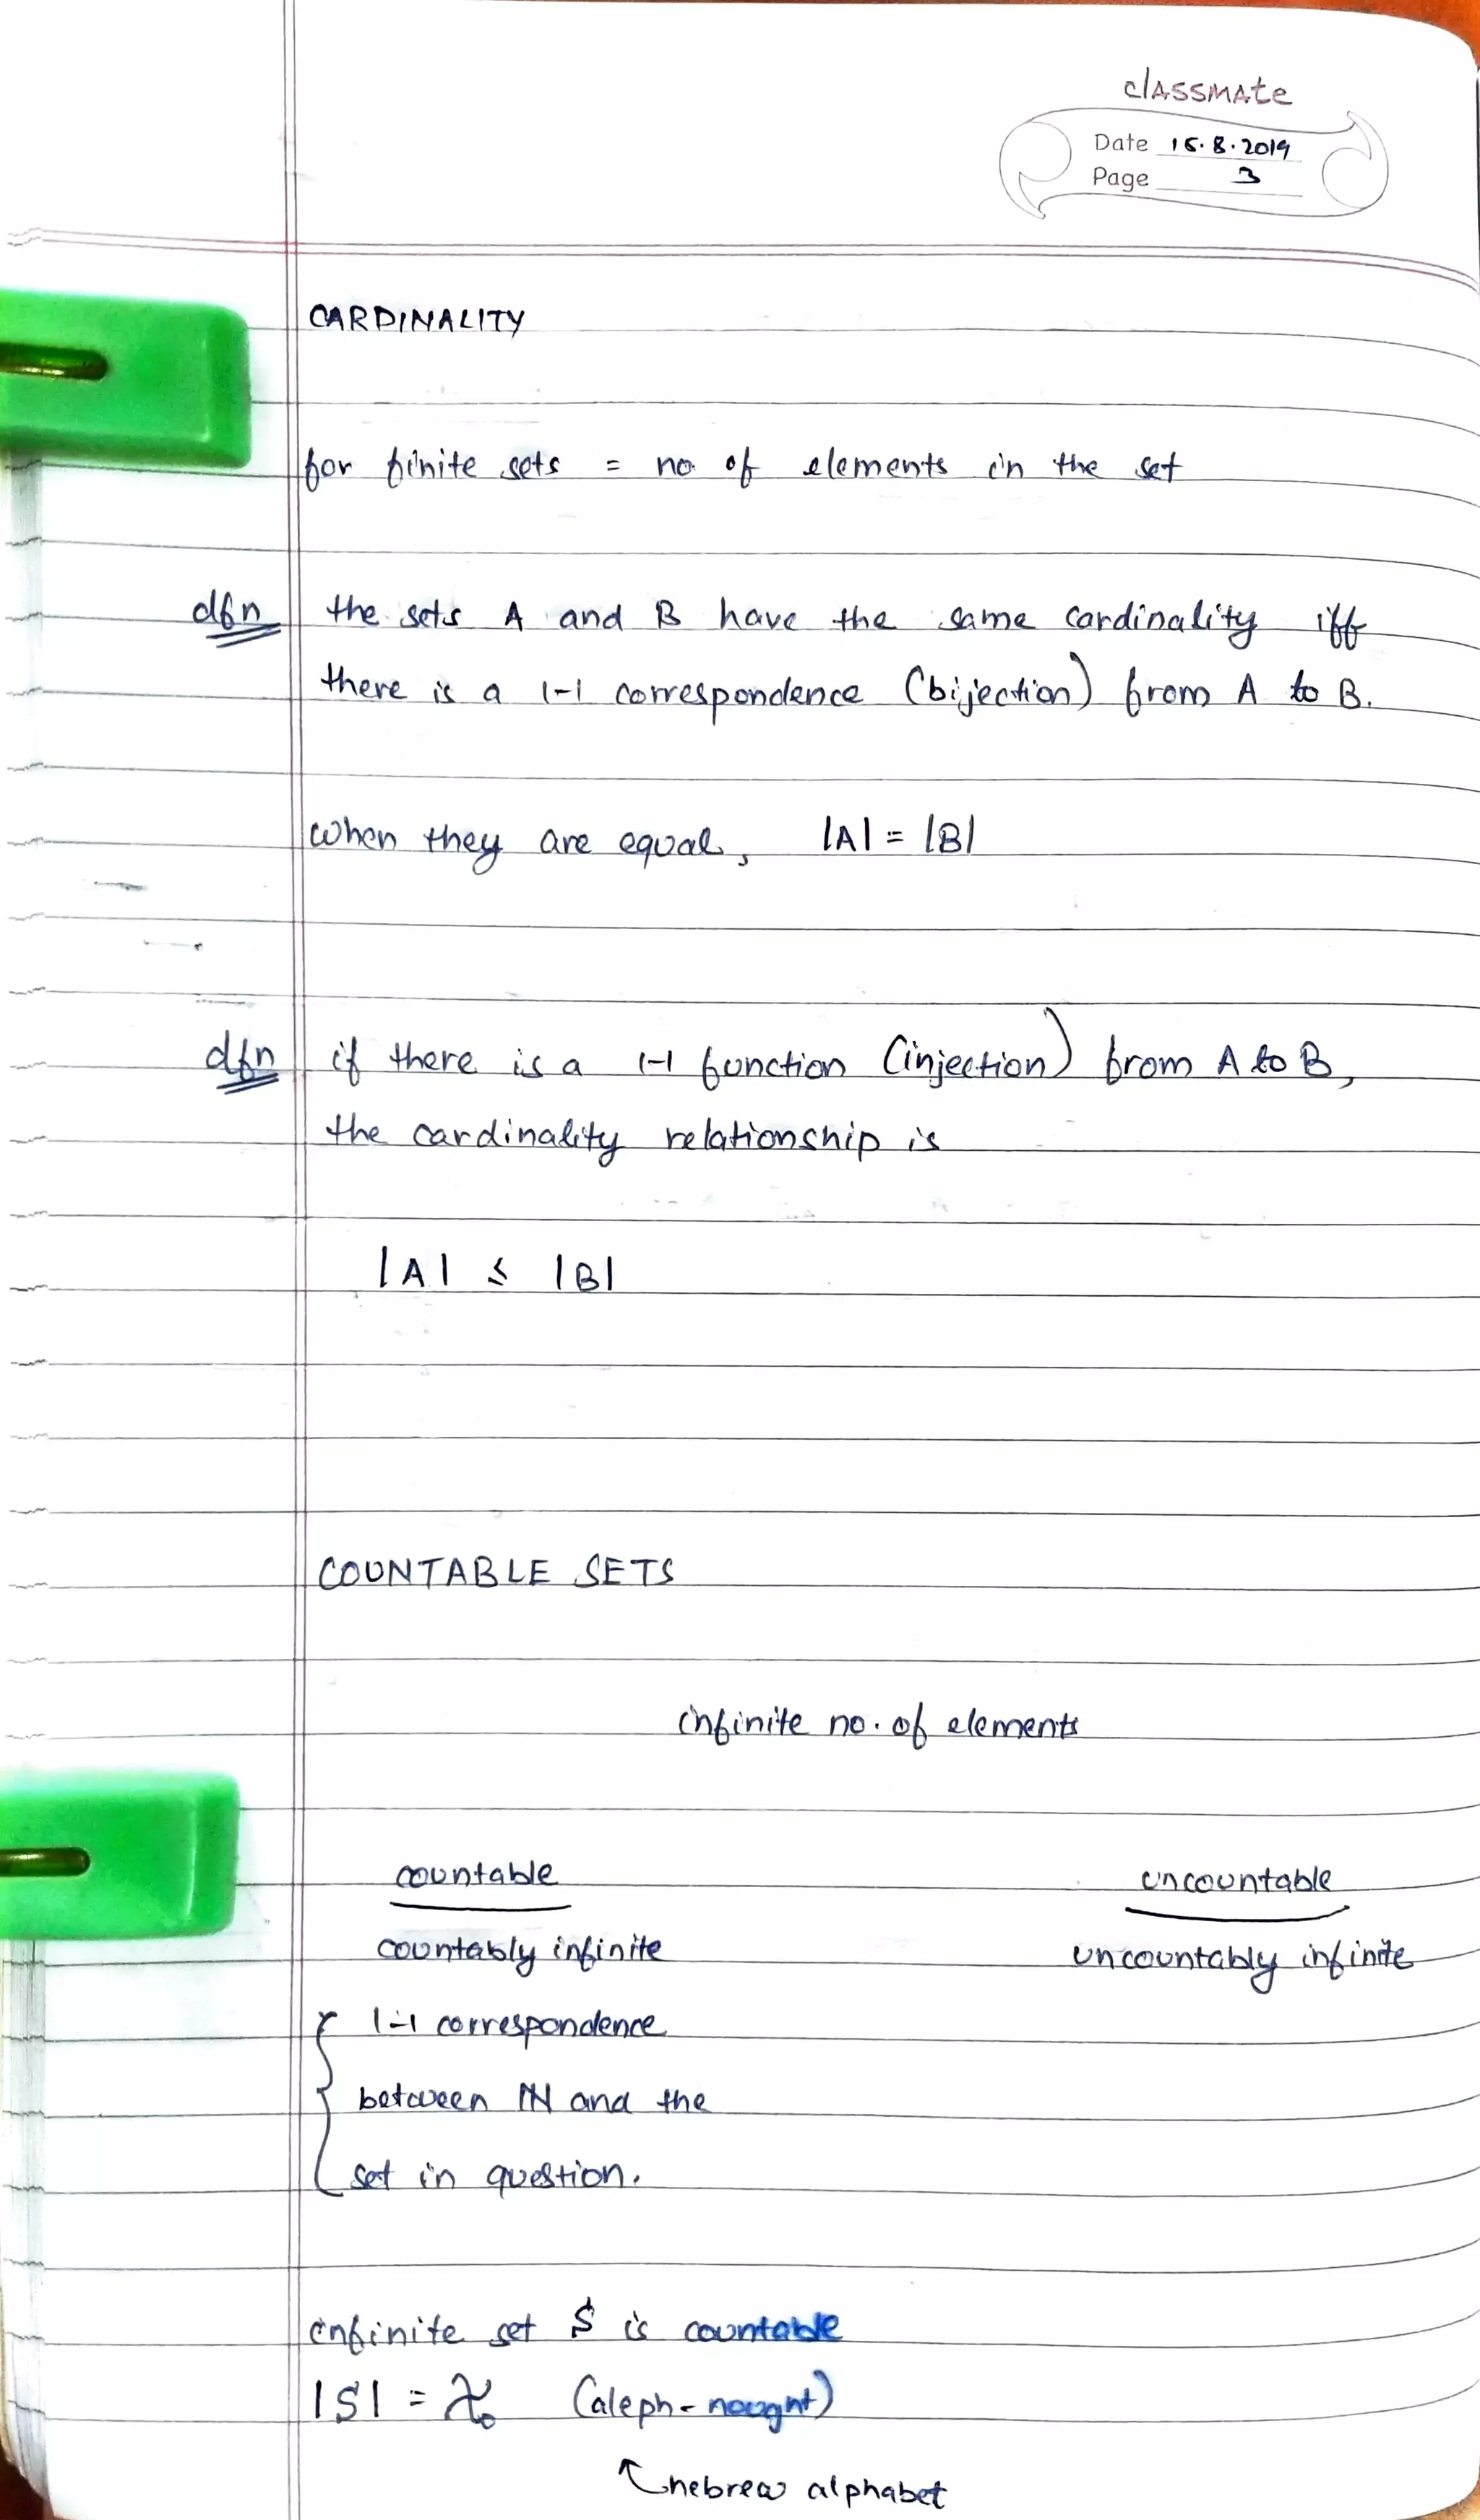 classmate
Date 15.8.2019
Page 3
CARDINALITY
for finite sets = no. of elements in the set
dfn the sets A and B have the same cardinality iff
there is a 1-1 correspondence (bijection) from A to B.
When they are equal, |A| = |B|
dfn if there is a 1-1 function (injection) from A to B,
the cardinality relationship is
|A| ≤ |B|
COUNTABLE SETS
infinite no. of elements
countable uncountable
countably infinite uncountably infinite
1-1 correspondence
between ℕ and the
set in question.
infinite set S is countable
|S| = ℵ₀ (aleph-nought)
hebrew alphabet